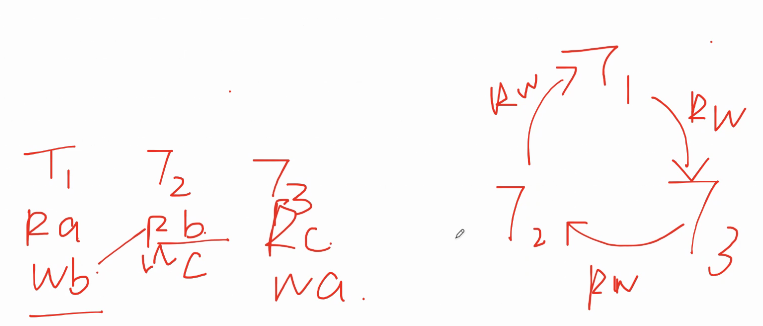 T1 T2 T3
Ra Rb Rc
Wb Wc Wa
T1
RW
RW
T2
T3
RW